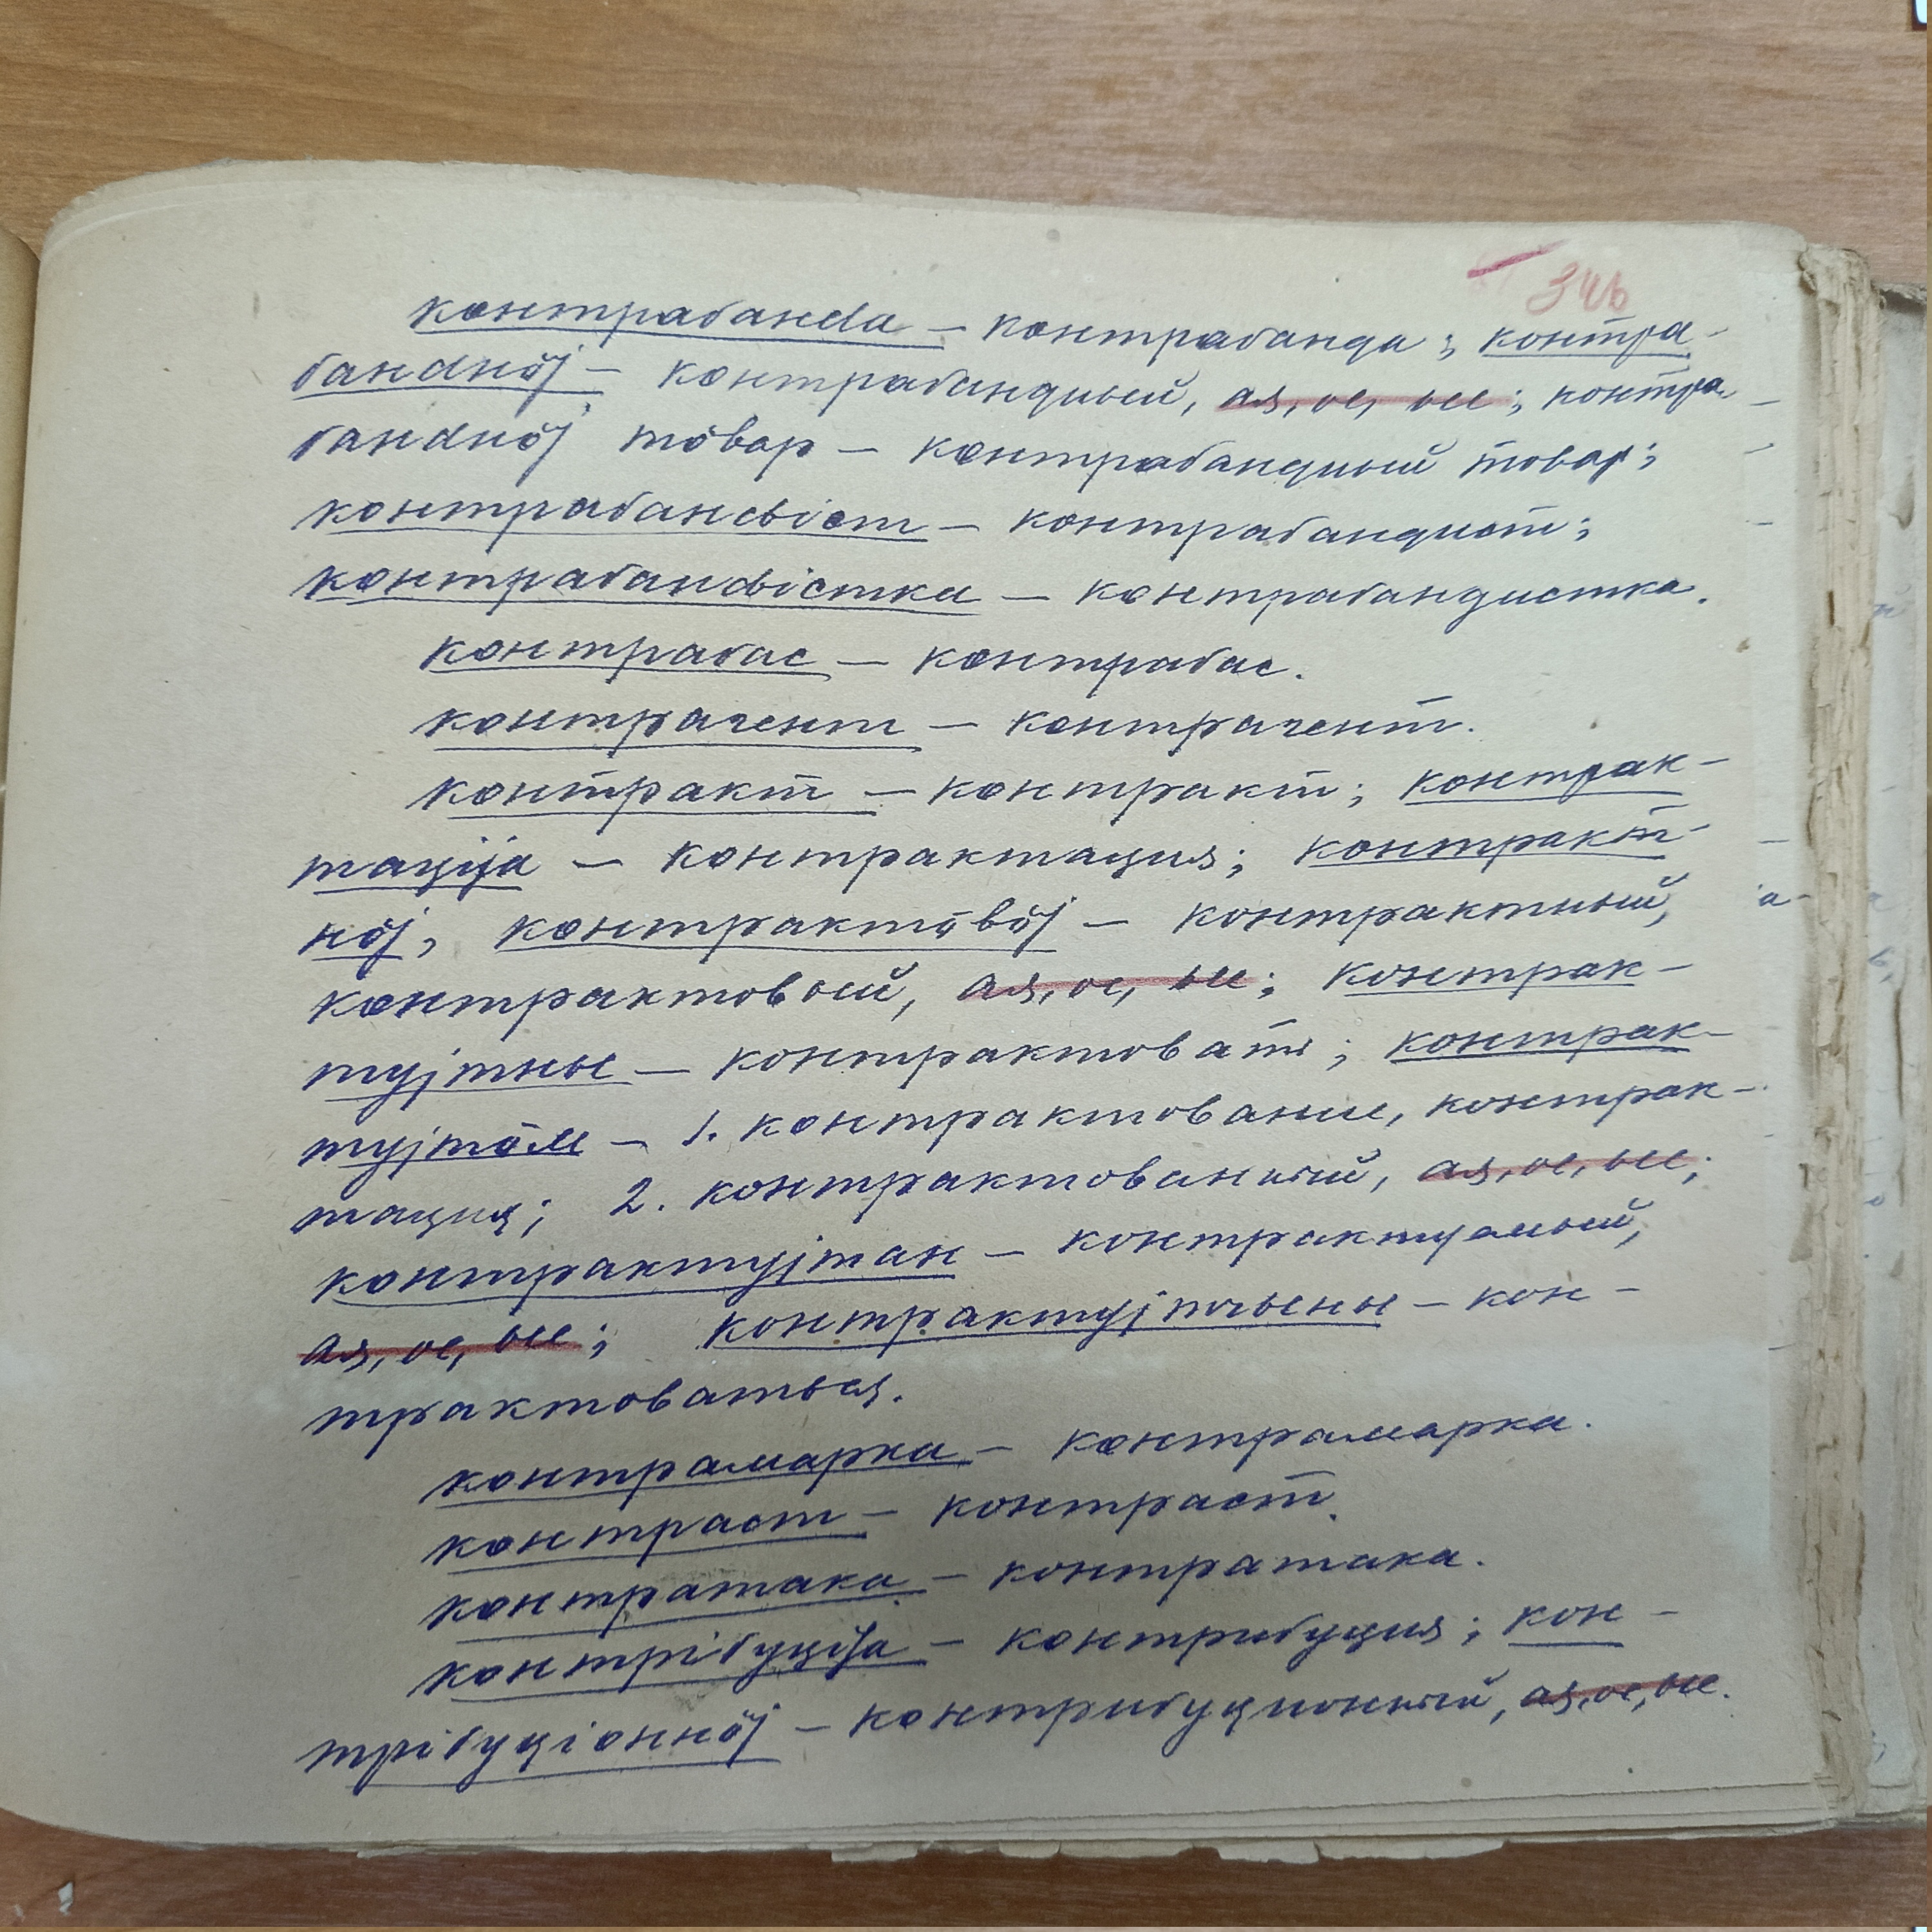 346
контрабанdа – контрабанда; контра-
банdнöj – контрабандный, ая, ое, ые; контра-
банdнöj тöвар – контрабандный товар;
контрабанԃіст – контрабандист;
контрабанԃістка – контрабандистка.
контрабас – контрабас.
контрагент – контрагент.
контракт – контракт; контрак-
таціjа – контрактация; контракт-
нöj, контрактöвöj – контрактный,
контрактовый, ая, ое, ые; контрак-
туjтны – контрактовать; контрак-
туjтöм – 1. контрактование, контрак-
тация; 2. контрактованный, ая, ое, ые;
контрактуjтан – контрактуемый,
ая, ое, ые; контрактуjтчыны – кон-
трактоваться.
контрамарка – контрамарка.
контраст – контраст.
контратака – контратака.
контрібуціjа – контрибуция; кон-
трібуціоннöj – контрибуционный, ая, ое, ые.